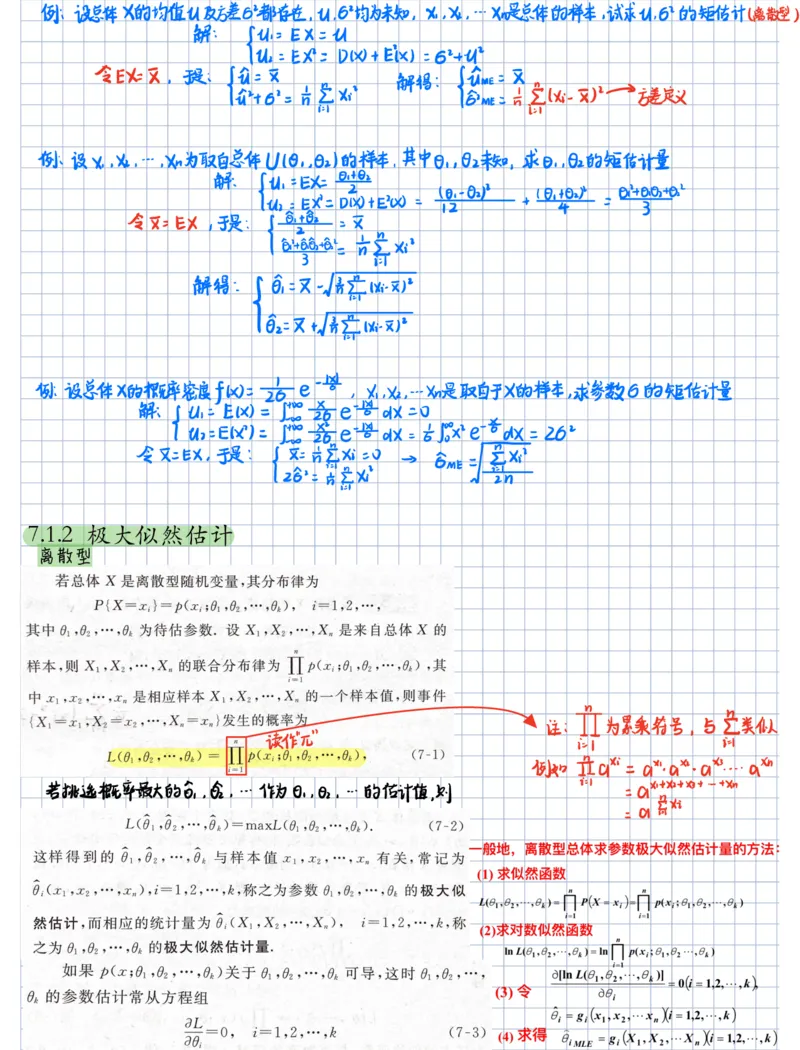 例: 设总体 X的均值 u 及方差 6²都存在, u, 6²均为未知, X₁, X₂, … Xn是总体的样本, 试求 u, 6² 的矩估计(离散型)
解: { u₁ = EX = u
u₂ = EX² = D(X) + E²(X) = 6²+u²
令EX=X̄, 于是: { û = X̄
û²+6̂² = 1/n Σᵢ₌₁ⁿ Xi²
解得: { ûME = X̄
6̂²ME = 1/n Σᵢ₌₁ⁿ (Xi-X̄)² → 方差定义
例: 设 X₁, X₂, …, Xn为取自总体 U(θ₁, θ₂)的样本, 其中θ₁, θ₂未知, 求 θ₁, θ₂的矩估计量
解: { u₁ = EX = (θ₁+θ₂)/2
u₂ = EX² = D(X)+E²(X) = (θ₁-θ₂)²/12 + (θ₁+θ₂)²/4 = (θ₁²+θ₁θ₂+θ₂²)/3
令 X̄ = EX, 于是: { (θ̂₁+θ̂₂)/2 = X̄
(θ̂₁²+θ̂₁θ̂₂+θ̂₂²)/3 = 1/n Σᵢ₌₁ⁿ Xi²
解得: { θ̂₁ = X̄ - √(3/n Σᵢ₌₁ⁿ (Xi-X̄)²)
θ̂₂ = X̄ + √(3/n Σᵢ₌₁ⁿ (Xi-X̄)²)
例: 设总体 X的概率密度 f(x) = 1/26 e^(-|x|/6), X₁, X₂, … Xn是取自于X的样本, 求参数 6 的矩估计量
解: { u₁ = E(X) = ∫₋∞⁺∞ x/26 e^(-|x|/6) dx = 0
u₂ = E(X²) = ∫₋∞⁺∞ x²/26 e^(-|x|/6) dx = 1/6 ∫₀^∞ x² e^(-x/6) dx = 26²
令 X̄=EX, 于是: { X̄ = 1/n Σᵢ₌₁ⁿ Xi = 0
26̂² = 1/n Σᵢ₌₁ⁿ Xi²
→ 6̂ME = √(Σᵢ₌₁ⁿ Xi²/2n)
7.1.2 极大似然估计
离散型
若总体 X 是离散型随机变量,其分布律为
P{X=xᵢ}=p(xᵢ;θ₁,θ₂,…,θₖ), i=1,2,…,
其中 θ₁,θ₂,…,θₖ 为待估参数. 设 X₁,X₂,…,Xₙ 是来自总体 X 的
样本,则 X₁,X₂,…,Xₙ 的联合分布律为 ∏ᵢ₌₁ⁿ p(xᵢ;θ₁,θ₂,…,θₖ),其
中 x₁,x₂,…,xₙ 是相应样本 X₁,X₂,…,Xₙ 的一个样本值,则事件
{X₁=x₁,X₂=x₂,…,Xₙ=xₙ}发生的概率为
读作"元"
L(θ₁,θ₂,…,θₖ) = ∏ᵢ₌₁ⁿ p(xᵢ;θ₁,θ₂,…,θₖ), (7-1)
若挑选概率最大的θ̂₁, θ̂₂, … 作为 θ₁, θ₂, … 的估计值, 则
L(θ̂₁,θ̂₂,…,θ̂ₖ)=maxL(θ₁,θ₂,…,θₖ). (7-2)
这样得到的 θ̂₁,θ̂₂,…,θ̂ₖ 与样本值 x₁,x₂,…,xₙ 有关,常记为
θ̂ᵢ(x₁,x₂,…,xₙ),i=1,2,…,k,称之为参数 θ₁,θ₂,…,θₖ 的极大似
然估计,而相应的统计量为 θ̂ᵢ(X₁,X₂,…,Xₙ), i=1,2,…,k,称
之为 θ₁,θ₂,…,θₖ 的极大似然估计量.
如果 p(x;θ₁,θ₂,…,θₖ)关于 θ₁,θ₂,…,θₖ 可导,这时 θ₁,θ₂,…,
θₖ 的参数估计常从方程组
∂L/∂θᵢ=0, i=1,2,…,k (7-3)
注: ∏ᵢ₌₁ⁿ 为累乘符号, 与 Σᵢ₌₁ⁿ 类似
例如 ∏ᵢ₌₁ⁿ a^xi = a^x₁·a^x₂·a^x₃ … a^xn
= a^(x₁+x₂+x₃+…+xn)
= a^(Σᵢ₌₁ⁿ xi)
一般地，离散型总体求参数极大似然估计量的方法:
(1) 求似然函数
L(θ₁,θ₂,⋯,θₖ)=∏ᵢ₌₁ⁿ P(X = xᵢ)=∏ᵢ₌₁ⁿ p(xᵢ;θ₁,θ₂,⋯,θₖ)
(2)求对数似然函数
ln L(θ₁,θ₂,⋯,θₖ) = ln ∏ᵢ₌₁ⁿ p(xᵢ;θ₁,θ₂⋯,θₖ)
(3) 令 ∂[ln L(θ₁,θ₂,⋯,θₖ)]/∂θᵢ = 0(i = 1,2,⋯,k),
θ̂ᵢ = gᵢ(x₁,x₂,⋯xₙ)(i = 1,2,⋯,k)
(4) 求得 θ̂ᵢMLE = gᵢ(X₁,X₂,⋯Xₙ)(i = 1,2,⋯,k)